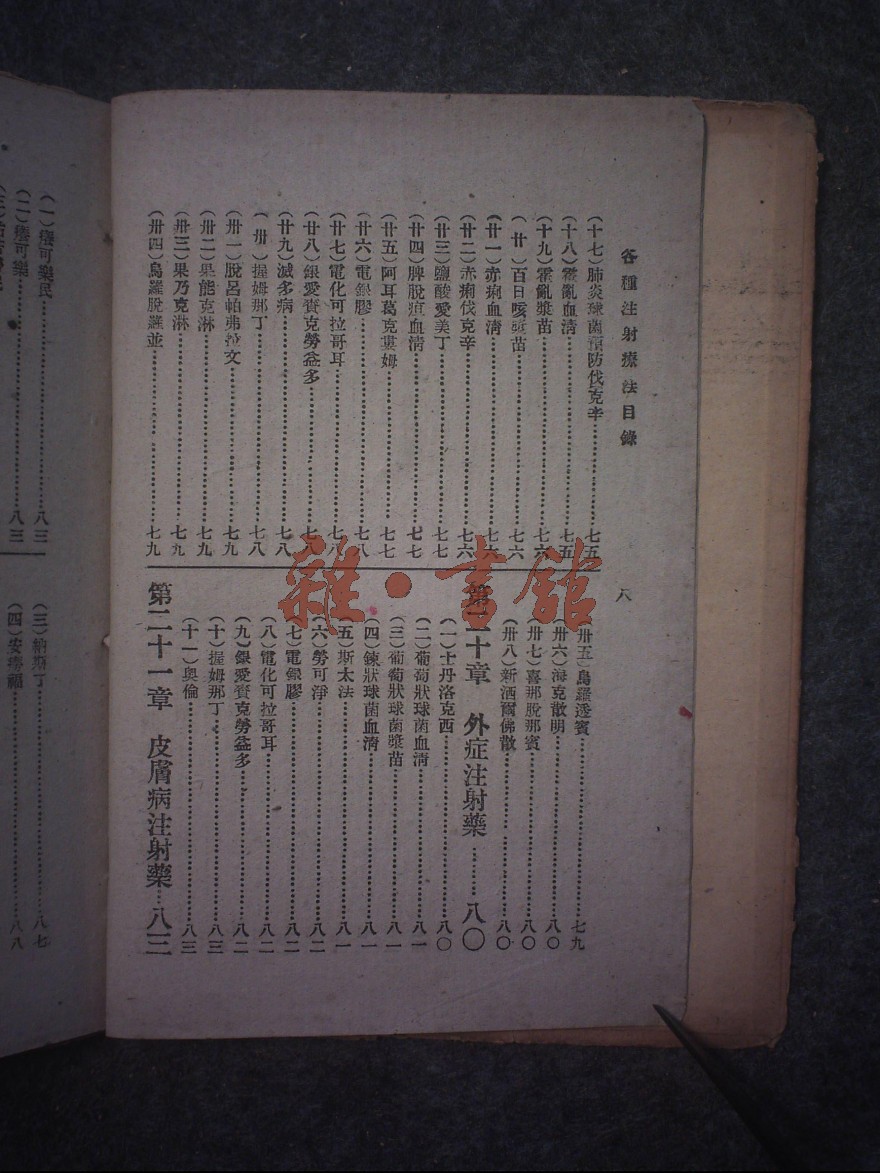 各種注射療法目錄
八
(十七)肺炎球菌預防伐克辛……七五
(十八)霍亂血清……七五
(十九)霍亂漿苗……七六
(廿)百日咳漿苗……七六
(廿一)赤痢血清……七六
(廿二)赤痢伐克辛……七六
(廿三)鹽酸愛美丁……七七
(廿四)脾脫疽血清……七七
(廿五)阿耳葛克婁姆……七七
(廿六)電銀膠……七八
(廿七)電化可拉哥耳……七八
(廿八)銀愛賚克勞益多……七八
(廿九)滅多病……七八
(卅)握姆那丁……七八
(卅一)脫呂帕弗拉文……七九
(卅二)果能克淋……七九
(卅三)果乃克淋……七九
(卅四)烏羅脫羅並……七九
(卅五)烏羅透賓……七九
(卅六)海克散明……八〇
(卅七)喜那脫那賓……八〇
(卅八)新洒爾佛散……八〇
第二十章 外症注射藥……八〇
(一)士丹洛克西……八〇
(二)葡萄狀球菌血清……八一
(三)葡萄狀球菌漿苗……八一
(四)鍊狀球菌血清……八一
(五)斯太法……八一
(六)勞可淨……八二
(七)電銀膠……八二
(八)電化可拉哥耳……八二
(九)銀愛賚克勞益多……八二
(十)握姆那丁……八三
(十一)奧倫……八三
第二十一章 皮膚病注射藥……八三
(一)癢可藥民……八三
(二)癢可藥……八三
(三)納斯丁……八七
(四)安癆福……八八
雜·書館